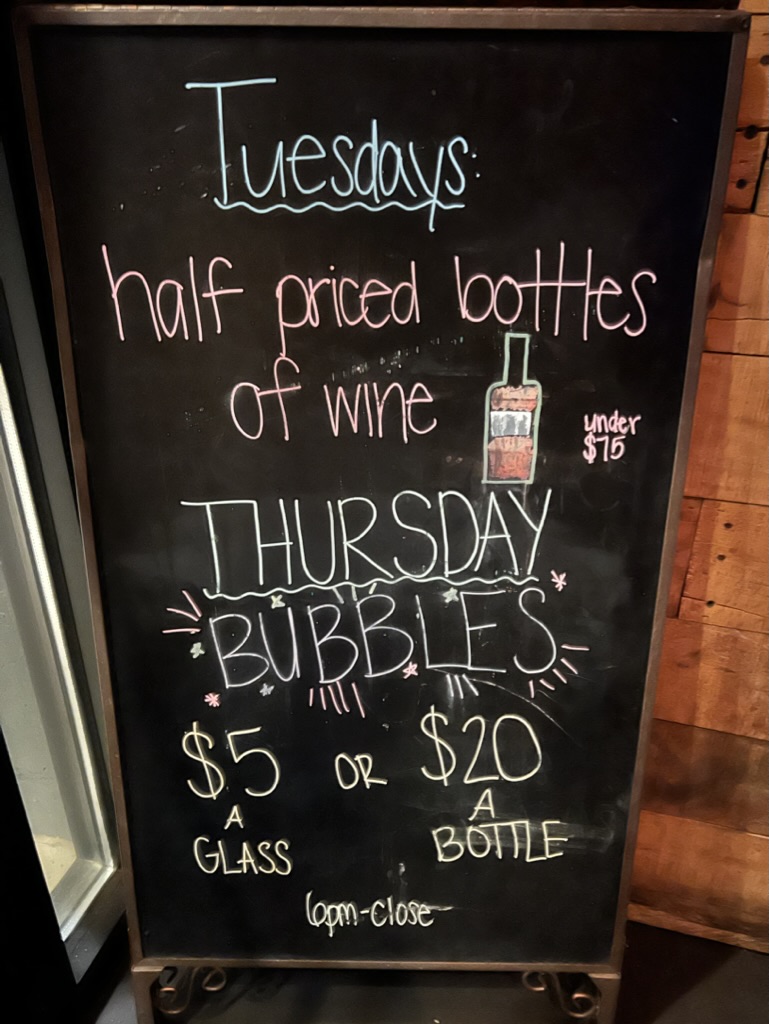 Tuesdays:
half priced bottles
of wine
under
$75
THURSDAY
BUBBLES
$5 OR $20
A A
GLASS BOTTLE
6pm-close